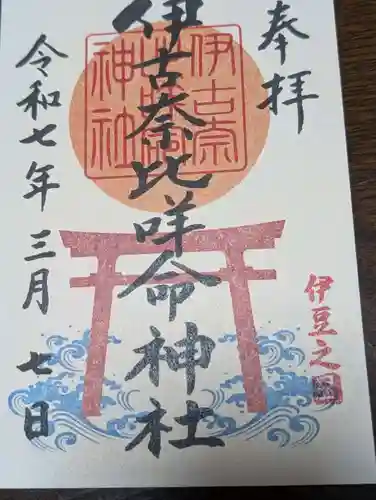 奉拝
伊古奈比咩命神社
令和七年三月七日
伊豆之国
伊古奈
比咩命
神社